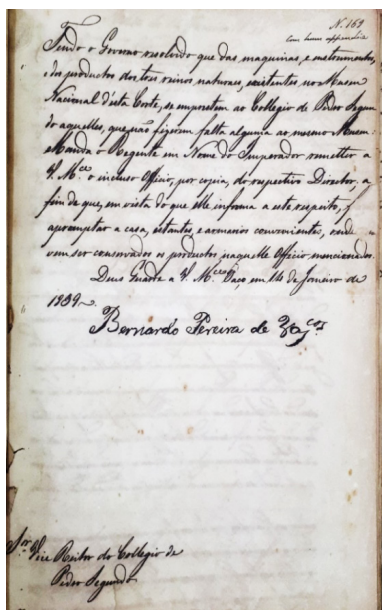 N. 169
com hum appendice
Tendo o Governo resolvido que das maquinas, e instrumentos,
e dos productos dos tres reinos naturaes, existentes no Museu
Nacional d'esta Corte, se emprestem ao Collegio de Pedro Segun
do aquelles, que não fizerem falta alguma ao mesmo Museu:
Manda o Regente em Nome do Imperador remetter a
V. M.ce o incluso Officio, por copia, do respectivo Director, a
fim de que, em vista do que elle informa a este respeito, faça
apromptar a casa, estantes, e armarios convenientes, onde
vem ser conservados os productos naquelle Officio mencionados.
Deus Guarde a V. M.ce Paço, em 14 de Janeiro de
1839.
Bernardo Pereira de Vas.cos
Snr. Vice Reitor do Collegio de
Pedro Segundo